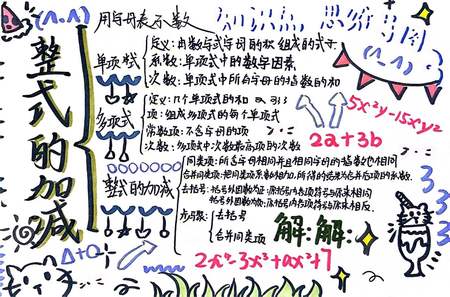 (^.^)
用字母表示数
知识点 思维导图
(^_^)
整式的加减
单项式
定义:由数与式字母的积组成的式子
系数:单项式中的数字因素
次数:单项式中所有字母的指数的和
多项式
定义:几个单项式的和
项:组成多项式的每个单项式
常数项:不含字母的项
次数:多项式中次数最高项的次数
5x²y-15xy²
2a+3b
整式的加减
同类项:所含字母相同并且相同字母的指数也相同
合并同类项:把同类项系数的相加,所得的结果为合并后项的系数
去括号:括号外因数为正:原括号内各项符号与原来相同
括号外因数为负:原括号内各项符号与原来相反
步骤:去括号
合并同类项
解:解:
3
3
3
Δ+O
2x⁴-3x³+ax²+7